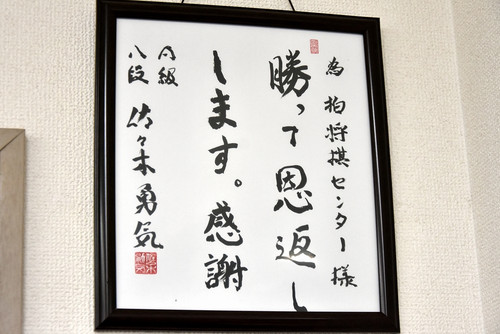 為 柏将棋センター様
勝って恩返し
します。感謝
A級
八段 佐々木勇気